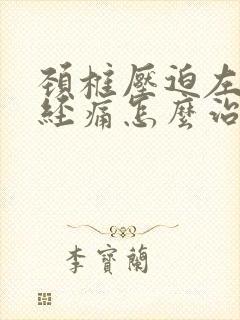 頚椎壓迫左
經痛怎麼治
李寶蘭